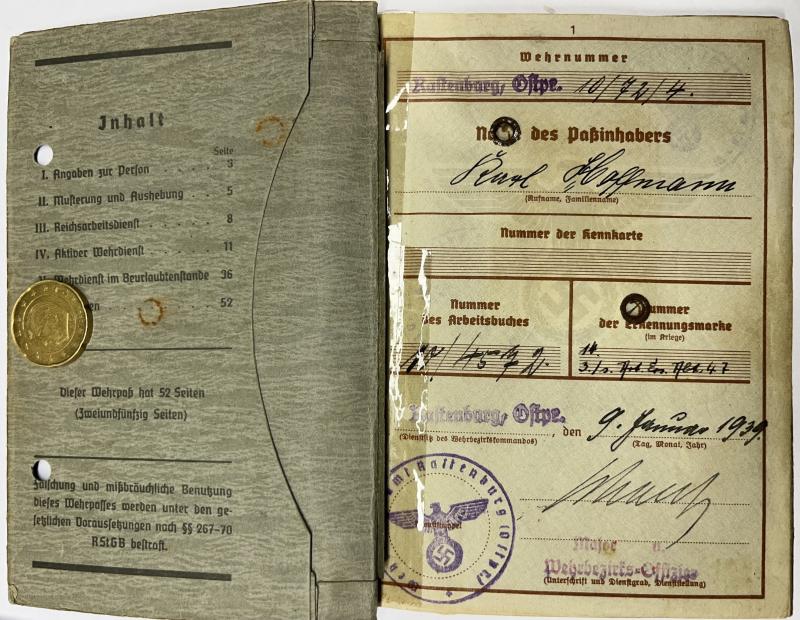 Inhalt
Seite
I. Angaben zur Person . . . 3
II. Musterung und Aushebung . 5
III. Reichsarbeitsdienst . . . 8
IV. Aktiver Wehrdienst . . . 11
Wehrdienst im Beurlaubtenstande 36
. . . 52
Dieser Wehrpaß hat 52 Seiten
(Zweiundfünfzig Seiten)
Fälschung und mißbräuchliche Benutzung
dieses Wehrpasses werden unter den ge-
setzlichen Voraussetzungen nach §§ 267-70
RStGB bestraft.
1
Wehrnummer
Rastenburg, Ostpr. 10/72/4.
des Paßinhabers
Karl Hoffmann
(Rufname, Familienname)
Nummer der Kennkarte
Nummer
des Arbeitsbuches
Nummer
der Erkennungsmarke
(im Kriege)
14.
Rastenburg, Ostpr. , den 9. Januar 1939.
(Dienstsitz des Wehrbezirkskommandos)
(Tag, Monat, Jahr)
Rastenburg (Ostpr.)
Major u.
Wehrbezirks-Offizier
(Unterschrift und Dienstgrad, Dienststellung)